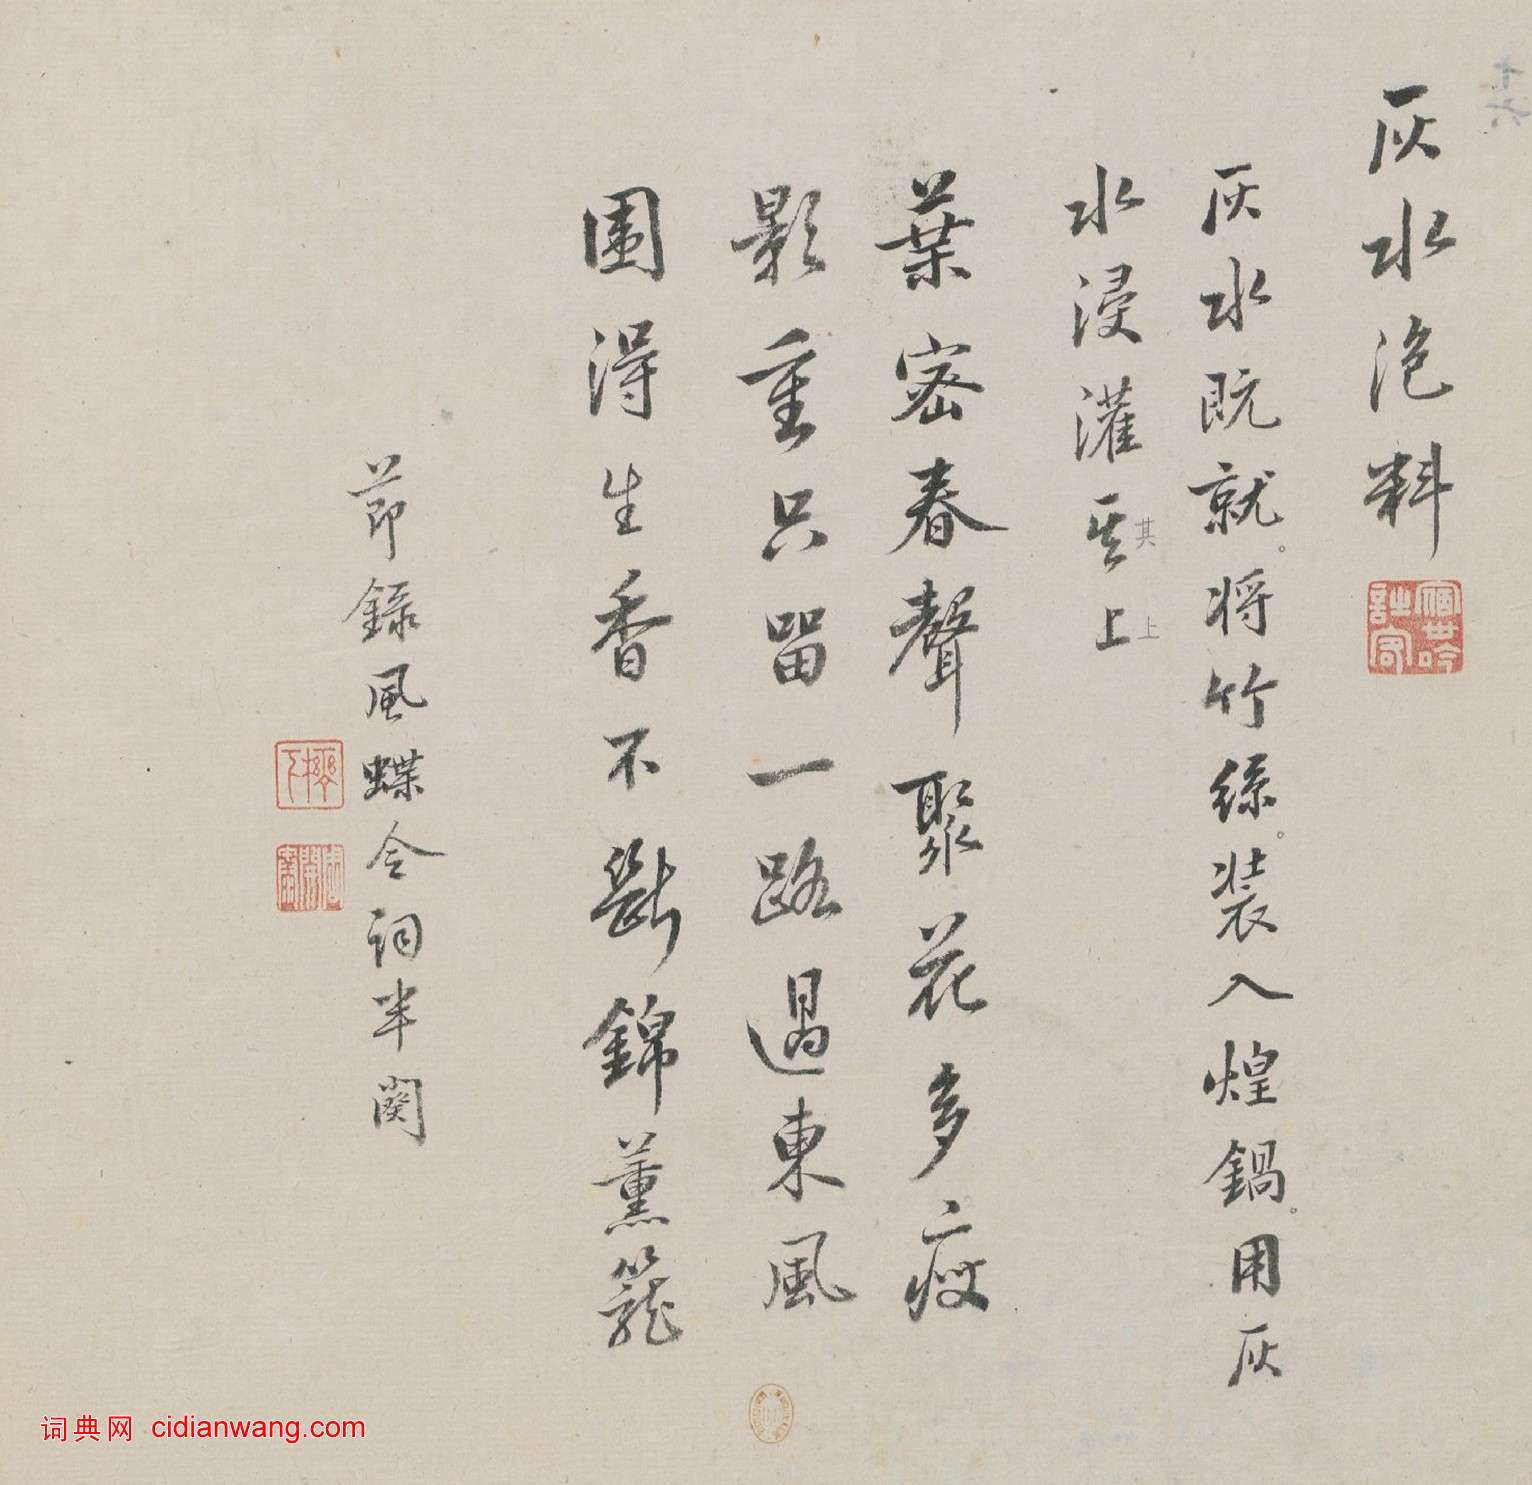 灰水泡料
灰水既就。将竹絲。装入煌鍋。用灰
水浸灌其上
其上
葉密春聲聚花多瘦
影重只留一路過東風
圍得生香不斷錦薰籠
節錄風蝶令詞半闋
十六
词典网 cidianwang.com